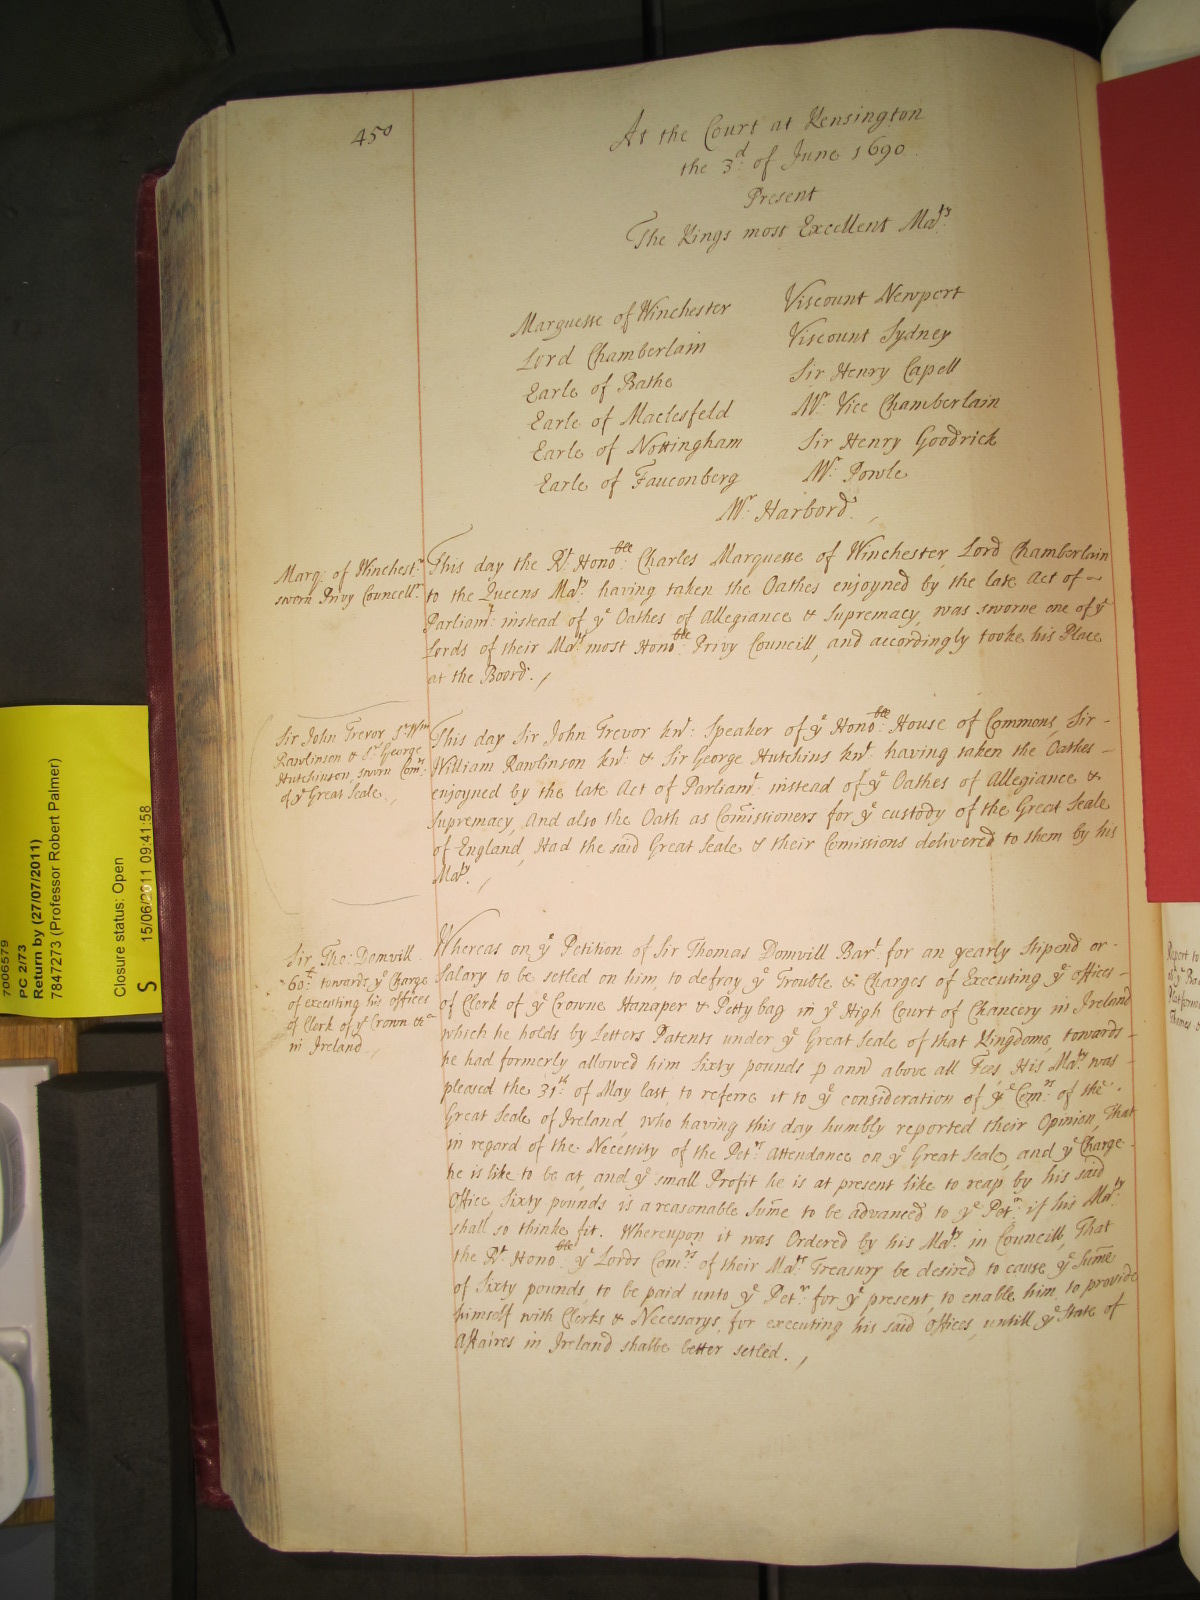 450
At the Court at Kensington
the 3d of June 1690
Present
The Kings most Excellent Maty
Marquesse of Winchester
Lord Chamberlain
Earle of Bathe
Earle of Maclesfeld
Earle of Nottingham
Earle of Fauconberg
Viscount Newport
Viscount Sydney
Sir Henry Capell
Mr Vice Chamberlain
Sir Henry Goodrick
Mr Powle
Mr Harbord.
Marq: of Winchestr
sworn Privy Councellr
This day the Rt Honoble Charles Marquesse of Winchester, Lord Chamberlain
to the Queens Maty having taken the Oathes enjoyned by the late Act of
Parliamt instead of ye Oathes of Allegiance & Supremacy, was sworne one of ye
Lords of their Mats most Honoble Privy Councill, and accordingly tooke his Place
at the Boord.
Sir John Trevor Sr Wm
Rawlinson & Sr George
Hutchinson sworn Comrs
of ye Great Seale
This day Sir John Trevor knt Speaker of ye Honoble House of Commons, Sir
William Rawlinson knt & Sir George Hutchins knt having taken the Oathes
enjoyned by the late Act of Parliamt instead of ye Oathes of Allegiance &
Supremacy, And also the Oath as Comissioners for ye custody of the Great Seale
of England, Had the said Great Seale & their Comissions delivered to them by his
Maty.
Sir Tho: Domvill
60li towards ye Charge
of executing his offices
of Clerk of ye Crown &c
in Ireland
Whereas on ye Petition of Sir Thomas Domvill Bart for an yearly Stipend or
Salary to be setled on him, to defroy ye Trouble & Charges of Executing ye offices
of Clerk of ye Crowne Hanaper & Pettybag in ye High Court of Chancery in Ireland
which he holds by Letters Patents under ye Great Seale of that Kingdome, towards
he had formerly allowed him Sixty pounds p ann above all Fees, His Maty was
pleased the 31th of May last, to referre it to ye consideration of ye Comrs of the
Great Seale of Ireland, who having this day humbly reported their Opinion, That
in regard of the Necessity of the Petrs Attendance on ye Great Seale, and ye Charge
he is like to be at, and ye small Profit he is at present like to reap by his said
Office, Sixty pounds is a reasonable Sume to be advanced to ye Petr if his Maty
shall so thinke fit. Whereupon it was Ordered by his Maty in Councill, That
the Rt Honoble ye Lords Comrs of their Mats Treasury be desired to cause ye Sume
of Sixty pounds to be paid unto ye Petr for ye present, to enable him to provide
himself with Clerks & Necessarys, for executing his said Offices, untill ye State of
Affaires in Ireland shalbe better setled.
7006579
PC 2/73
Return by (27/07/2011)
7847273 (Professor Robert Palmer)
Closure status: Open
S 15/06/2011 09:41:58